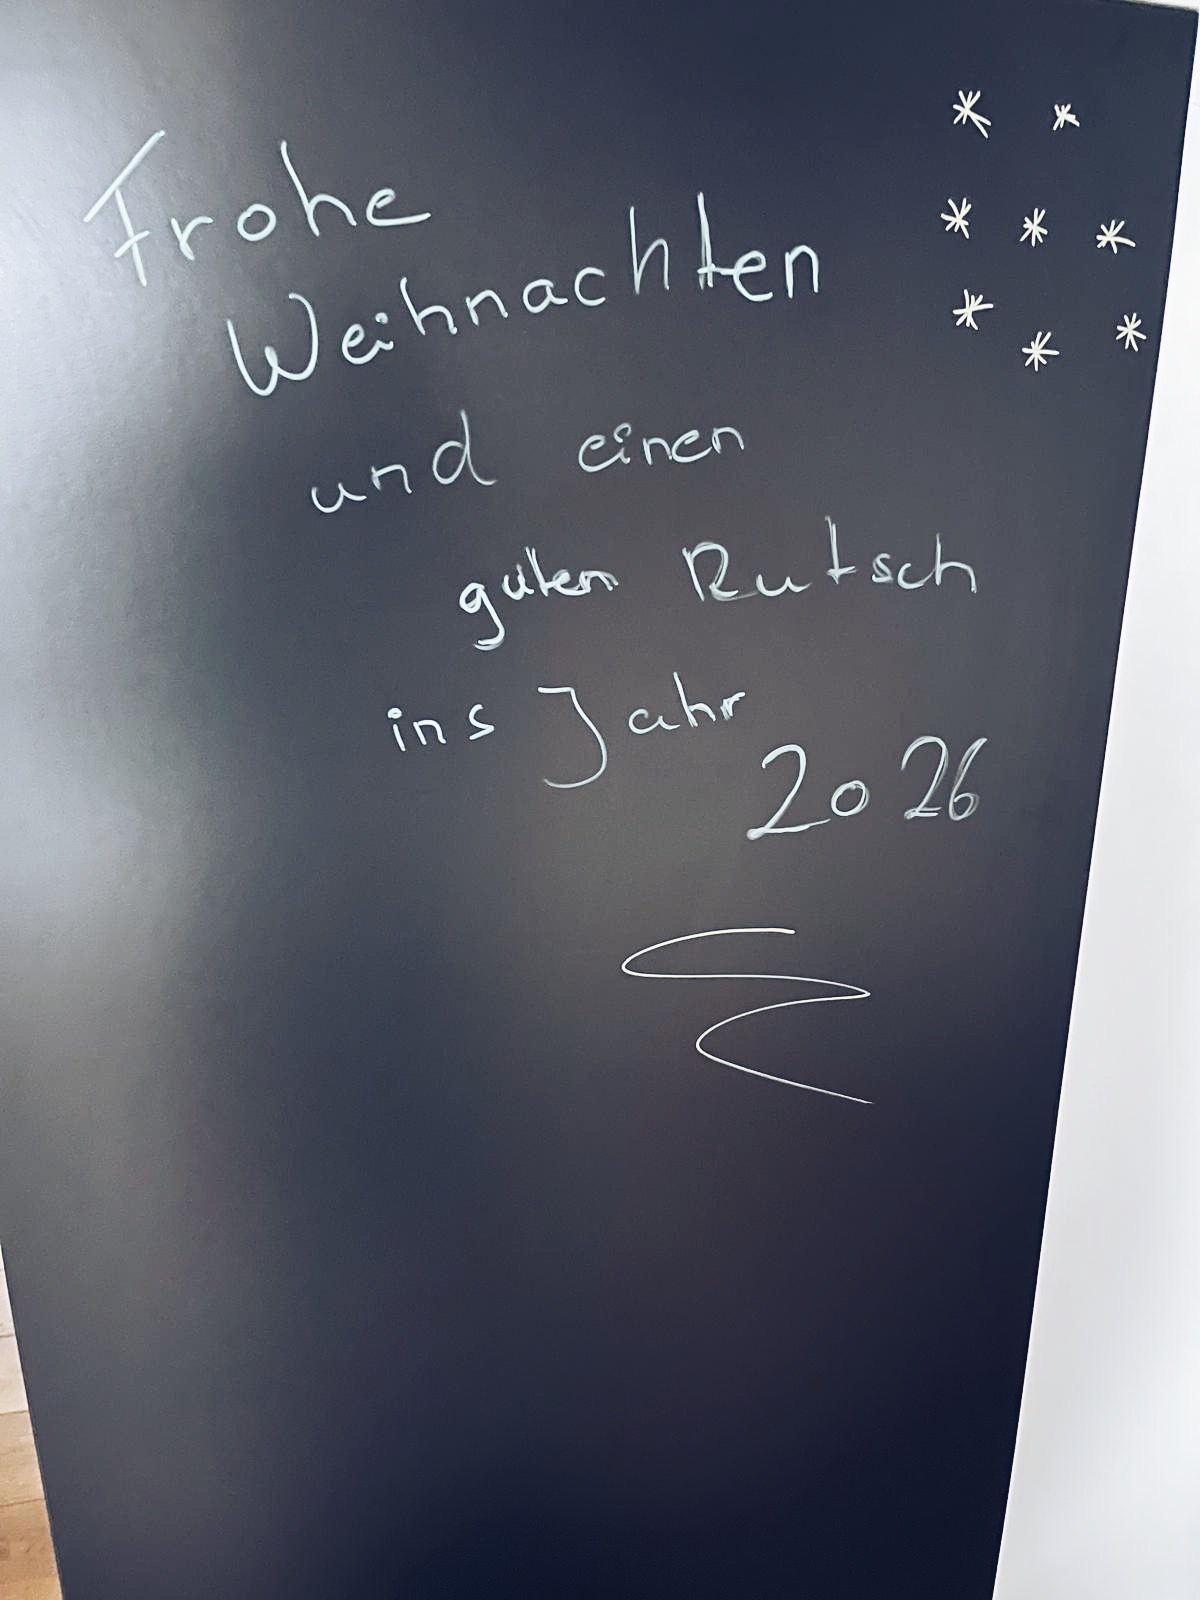 Frohe
Weihnachten
und einen
guten Rutsch
ins Jahr
2026